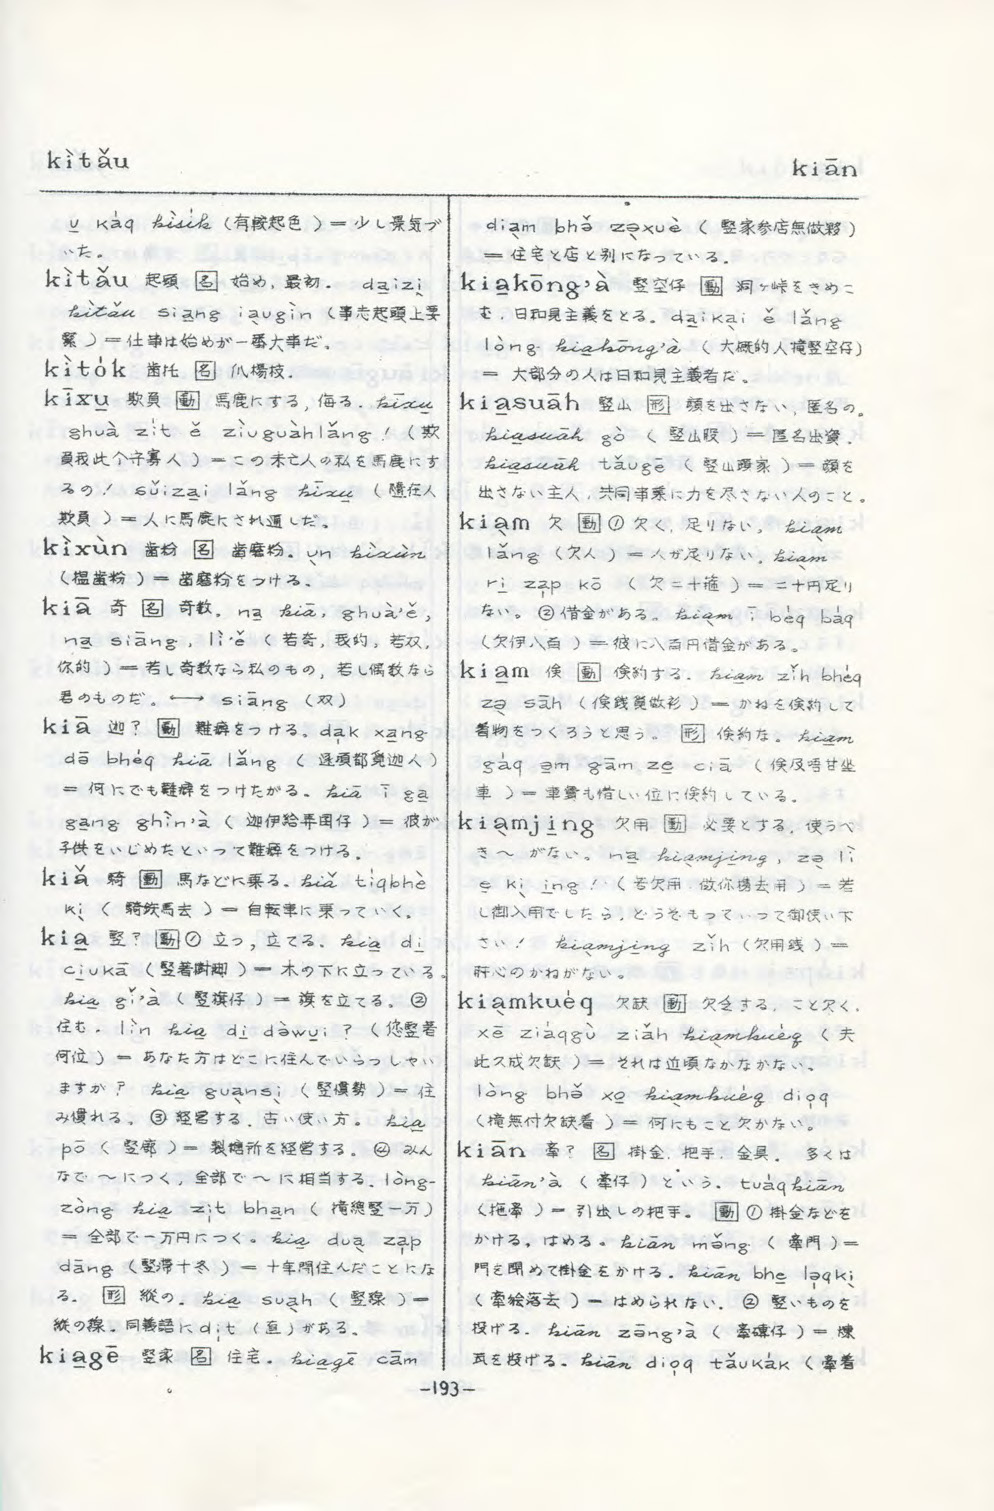 kìtău
kiān
u̱ ka̍q kìsik (有較起色)＝少し景気づ
いた。
kìtău 起頭 [名] 始め, 最初. da̱izì̱
kìtău siāng ia̱ugìn (事志起頭上要
緊)＝仕事は始めが一番大事だ。
kìtók 歯托 [名] 爪楊枝.
kīxu̱ 欺負 [動] 馬鹿にする, 侮る. kīxu̱
ghuà zi̍t ě zìuguàhlăng! (欺
負我此个守寡人)＝この未亡人の私を馬鹿にす
るの! sŭiza̱i lăng kīxu̱ (隨在人
欺負)＝人に馬鹿にされ通しだ。
kìxùn 歯粉 [名] 歯磨粉. ùn kìxùn
(搵歯粉)＝歯磨粉をつける。
kiā 奇 [名] 奇数. na̱ kiā, ghuà'ě,
na̱ siāng, lì'ě (若奇,我的,若双,
你的)＝若し奇数なら私のもの, 若し偶数なら
君のものだ。 ←→ siāng (双)
kiā 迦? [動] 難癖をつける。da̍k xa̱ng
dō bhéq kiā lăng (逐項都覓迦人)
＝何にでも難癖をつけたがる。kiā ī ga̱
ga̱ng ghìn'à (迦伊給弄囝仔)＝彼が
子供をいじめたといって難癖をつける。
kiă 騎 [動] 馬などに乗る. kiă tiqbhè
kì (騎鉄馬去)＝自転車に乗っていく。
kia̱ 竪? [動] ① 立つ, 立てる. kia̱ di̱
ciukā (竪著樹脚)＝木の下に立っている。
kia̱ gĭ'à (竪旗仔)＝旗を立てる。②
住む. lìn kia̱ di̱ dǝwui? (恁竪着
何位)＝あなた方はどこに住んでいらっしゃい
ますか? kia̱ guansì (竪慣勢)＝住
み慣れる。③ 経営する. 古い使い方。kia̱
pō (竪廍)＝製糖所を経営する。④ みん
なで〜につく, 全部で〜に相当する. lòng-
zòng kia̱ zi̍t bha̱n (攏總竪一万)
＝全部で一万円につく。kia̱ dua̱ za̍p
dāng (竪滞十冬)＝十年間住んだことにな
る. [形] 縦の. kia̱ suah (竪線)＝
縦の線. 同義語に di̍t (直)がある。
kia̱gē 竪家 [名] 住宅. kia̱gē cām
diàm bhǒ zǝxuè (竪家参店無做夥)
＝住宅と店と別になっている。
kia̱kōng'à 竪空仔 [動] 洞ヶ峠をきめこ
む. 日和見主義をとる。da̱ikài ě lăng
lòng kia̱kōng'à (大概的人攏竪空仔)
＝ 大部分の人は日和見主義者だ。
kia̱suāh 竪山 [形] 顔を出さない, 匿名の。
kia̱suāh gò (竪山股)＝匿名出資.
kia̱suāh tăugē (竪山頭家)＝顔を
出さない主人, 共同事業に力を尽さない人のこと。
kiàm 欠 [動] ① 欠く, 足りない。kiàm
lăng (欠人)＝人が足りない。kiàm
ri̱ za̍p kō (欠二十箍)＝二十円足り
ない。②借金がある。kiàm ī béq báq
(欠伊八百)＝彼に八百円借金がある。
kia̱m 倹 [動] 倹約する. kia̱m zĭh bhéq
zǝ sāh (倹銭覓做衫)＝かねを倹約して
着物をつくろうと思う。[形] 倹約な。kia̱m
gáq a̱m gām ze̱ ciā (倹及唔甘坐
車)＝車賃も惜しい位に倹約している。
kiàmji̱ng 欠用 [動] 必要とする. 使うべ
き〜がない。na̱ kiàmji̱ng, zǝ lì
e̱ kì i̱ng! (若欠用,做你揚去用)＝若
し御入用でしたら, どうぞもっていって御使い下
さい! kiàmji̱ng zĭh (欠用銭)＝
肝心のかねがない。
kiàmkuéq 欠缺 [動] 欠乏する. こと欠く.
xē ziáqgù ziăh kiàmkuéq (夫
此久成欠缺)＝それは近頃なかなかない.
lòng bhǒ xo̱ kiàmkuéq dio̍q
(攏無付欠缺着)＝何にもこと欠かない。
kiān 牽? [名] 掛金. 把手. 金具. 多くは
kiān'à (牽仔)という. tuáqkiān
(拖牽)＝引出しの把手。 [動] ① 掛金などを
かける, はめる。kiān mňg (牽門)＝
門を閉めて掛金をかける. kiān bhe̱ lǝqkì
(牽𣍐落去)＝はめられない. ② 竪いものを
投げる. kiān zāng'à (牽磚仔)＝煉
瓦を投げる。kiān dio̍q tăukák (牽着
-193-